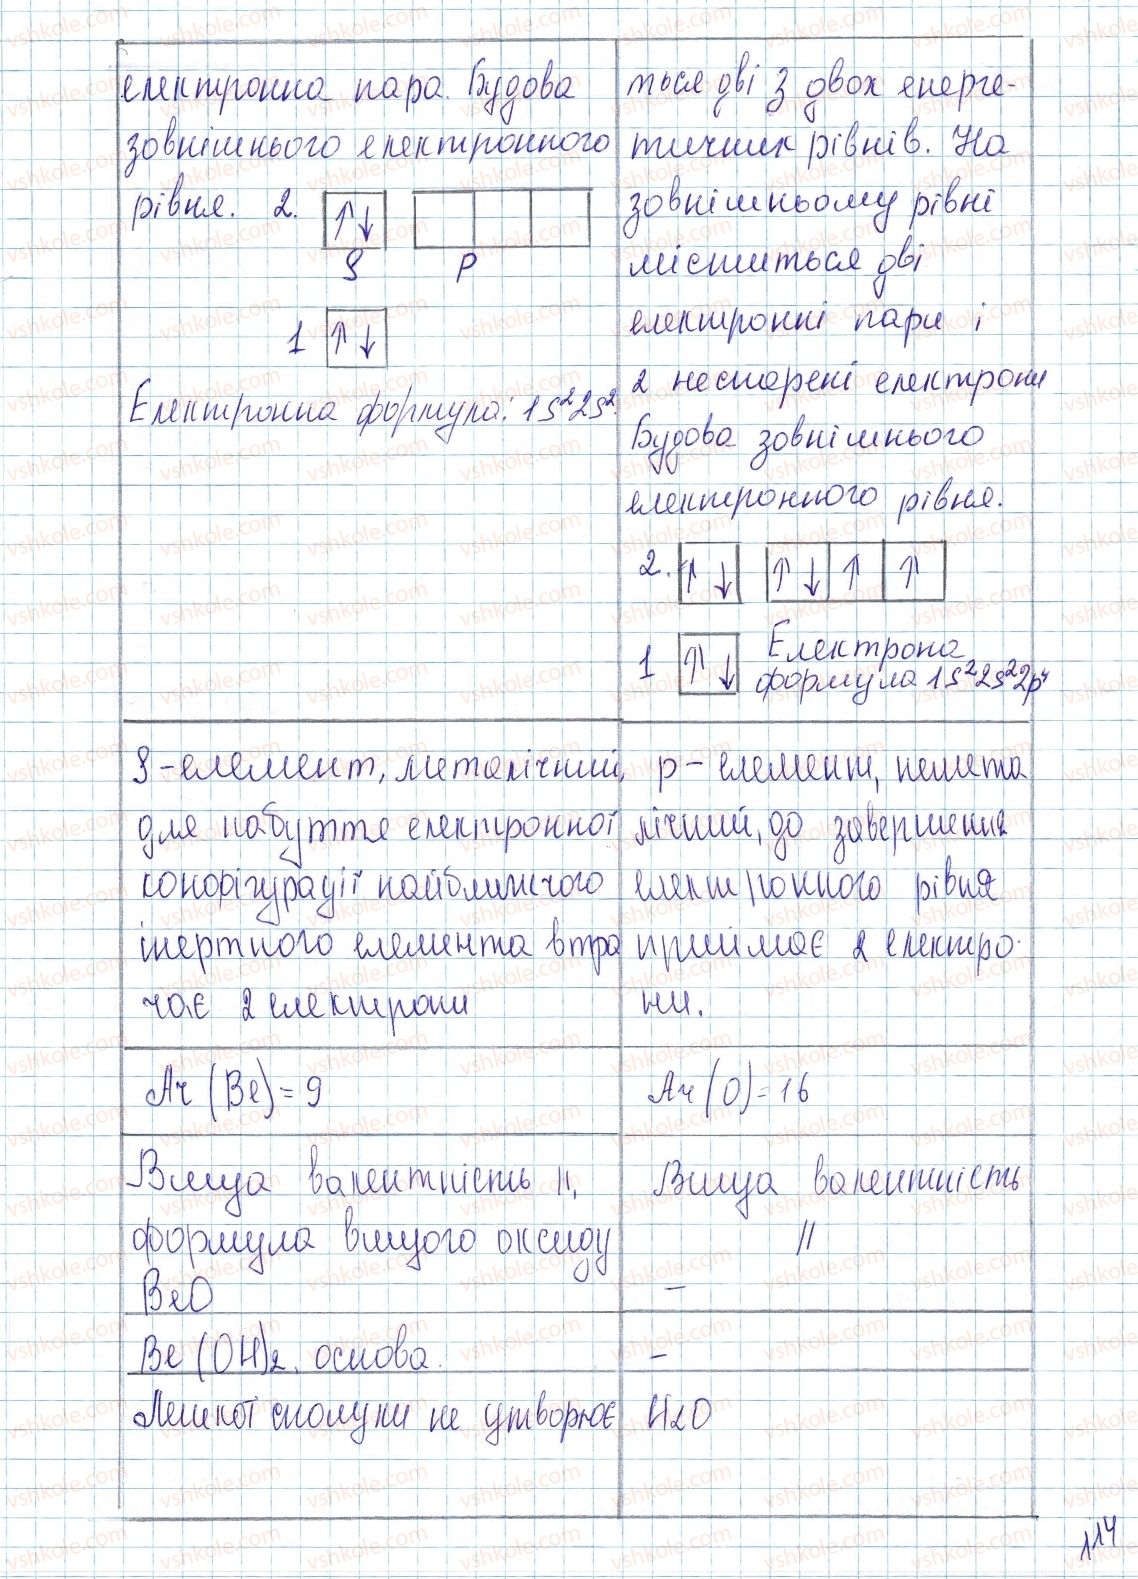 електронна пара. Будова
зовнішнього електронного
рівня. 2. ↑↓
S P
1 ↑↓
Електронна формула: 1s²2s².
ться дві з двох енерге-
тичних рівнів. На
зовнішньому рівні
міститься дві
електронні пари і
2 неспарені електрони
Будова зовнішнього
електронного рівня.
2. ↑↓ ↑↓ ↑ ↑
1 ↑↓ Електрона
формула 1s²2s²2p⁴
S-елемент, металічний,
для набуття електронної
конфігурації найближчого
інертного елемента втра
чає 2 електрони
p- елемент, немета
лічний, до завершення
електронного рівня
приймає 2 електро-
ни.
Ar (Be) = 9
Ar (O) = 16
Вища валентність II,
формула вищого оксиду
BeO
Вища валентність
II
–
Be(OH)2, основа.
–
Леткої сполуки не утворює
H2O
114